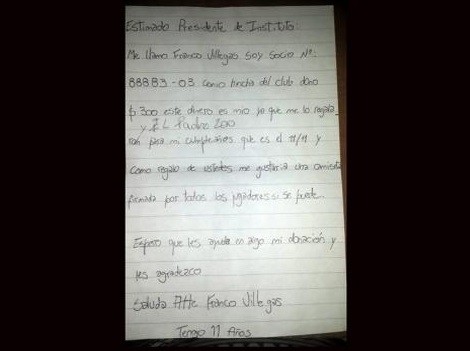 Estimado Presidente de Instituto:
Me llamo Franco Villegas soy socio Nº:
88883-03 como hincha del club dono
$ 300 este dinero es mio ya que me lo regala_
y EL Padre 200
ron para mi cumpleaños que es el 11/9 y
como regalo de ustedes me gustaria una camiseta
firmada por todos los jugadores si se puede...
Espero que les ayude en algo mi donación y
les agradezco
Saluda Atte Franco Villegas
Tengo 11 Años